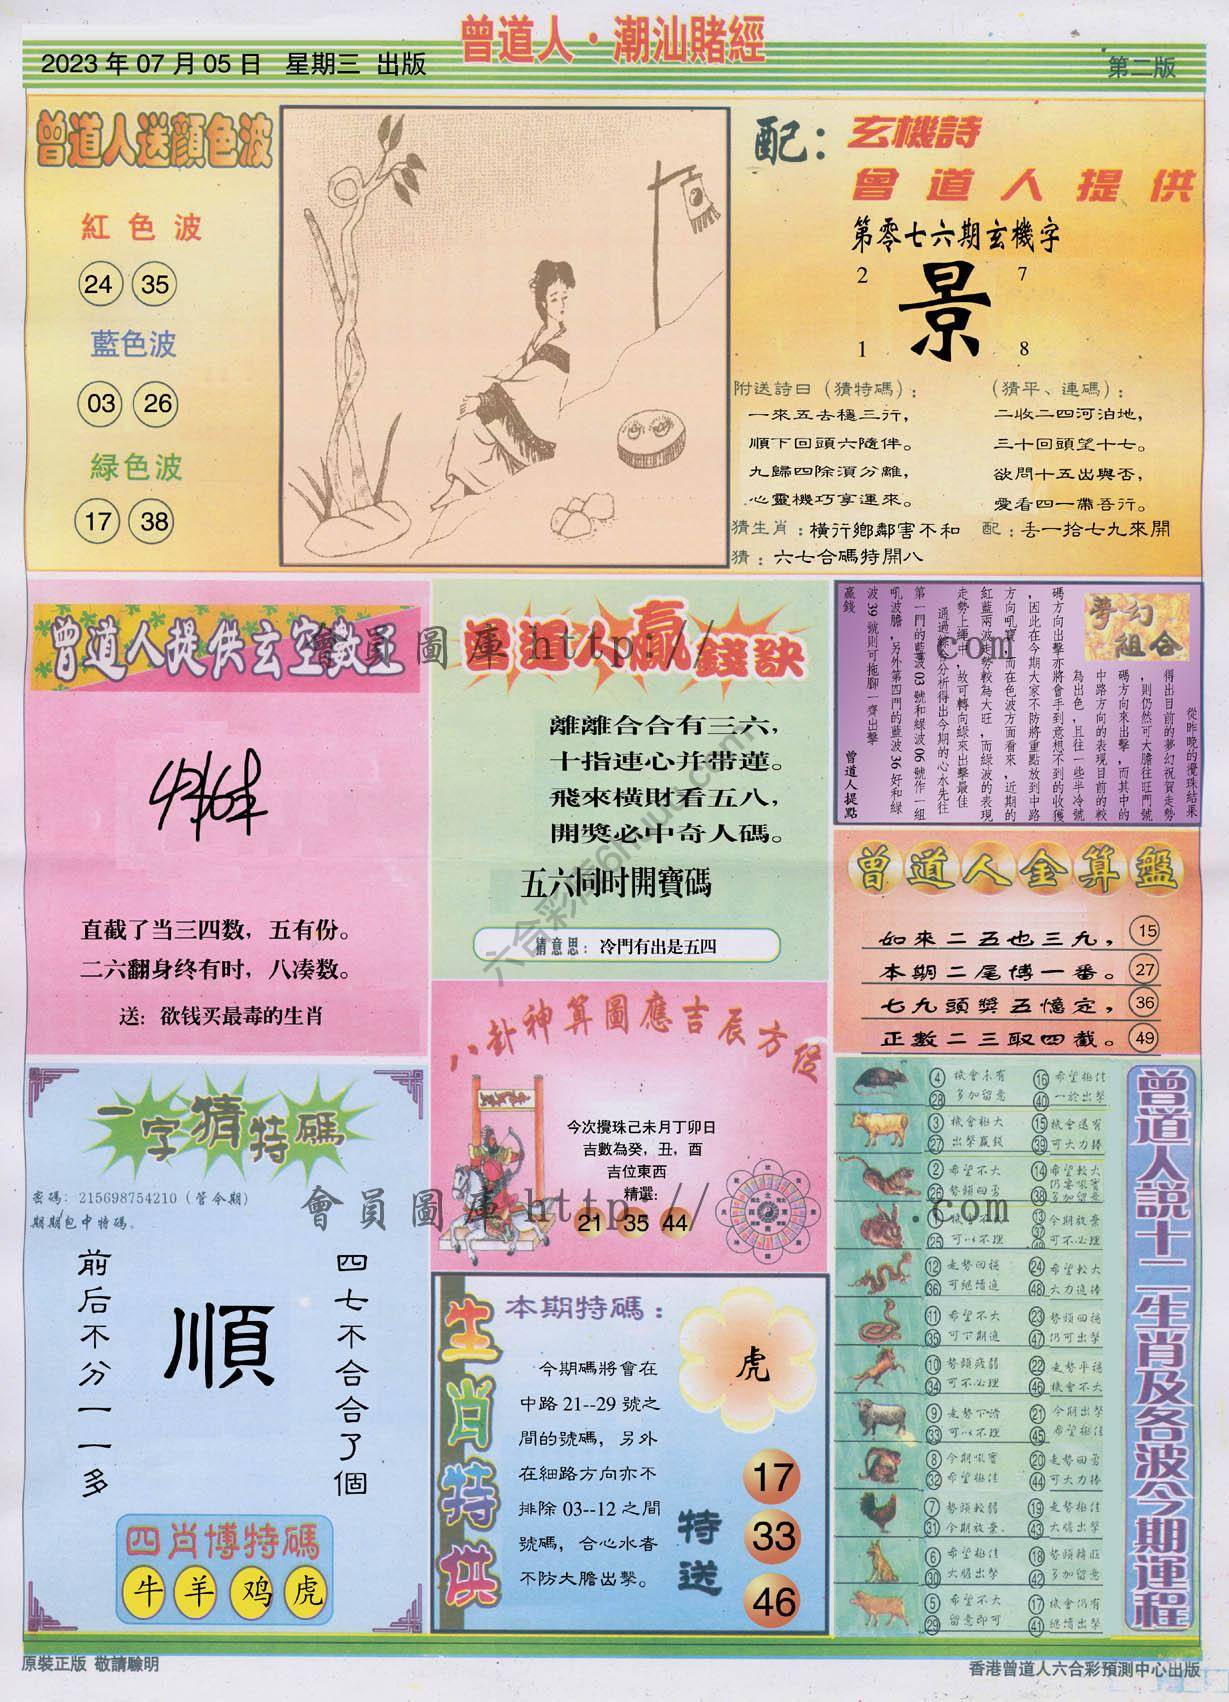 2023 年 07 月 05 日 星期三 出版
曾道人·潮汕賭經
第二版
曾道人送顏色波
紅色波
24 35
藍色波
03 26
緑色波
17 38
配：玄機詩
曾道人提供
第零七六期玄機字
2 7
景
1 8
附送詩曰（猜特碼）：
一來五去穩三行，
順下回頭六隨伴。
九歸四除須分離，
心靈機巧享運來。
（猜平、連碼）：
二收二四河泊地，
三十回頭望十七。
欲問十五出與否，
愛看四一帶吾行。
猜生肖：橫行鄉鄰害不和
配：丢一拾七九來開
猜：六七合碼特開八
曾道人提供玄空數王
直截了当三四数，五有份。
二六翻身终有时，八凑数。
送：欲钱买最毒的生肖
曾道人赢錢訣
離離合合有三六，
十指連心并带蓮。
飛來橫財看五八，
開獎必中奇人碼。
五六同时開寶碼
猜意思：冷門有出是五四
夢幻組合
從昨晚的攪珠結果
得出目前的夢幻祝賀走勢
，則仍然可大膽往旺門號
碼方向來出擊，而其中的
中路方向的表現目前的較
為出色，且往一些半冷號
碼方向出擊亦將會手到意想不到的收獲
，因此在今期大家不防將重點放到中路
方向吼寶，而在色波方面看來，近期的
紅藍兩波走勢較為大旺，而綠波的表現
走勢上繩中，故可轉向綠來出擊最佳
通過綜合分析得出今期的心水先往
第一門的藍波03號和綠波06號作一組
吼波膽，另外第四門的藍波36好和綠
波39號則可拖腳一齊出擊
贏錢
曾道人提點
曾道人金算盤
如來二五也三九， 15
本期二尾博一番。 27
七九頭獎五憶定， 36
正數二三取四截。 49
八卦神算圖應吉辰方位
今次攪珠己未月丁卯日
吉數為癸，丑，酉
吉位東西
精選:
21 35 44
一字猜特碼
密碼：215698754210（管今期）
期期包中特碼。
四七不合合了個
順
前后不分一一多
四肖博特碼
牛 羊 鸡 虎
生肖特供
本期特碼：
今期碼將會在
中路21--29 號之
間的號碼，另外
在細路方向亦不
排除03--12 之間
號碼，合心水者
不防大膽出擊。
虎
特送
17
33
46
曾道人說十二生肖及各波今期運程
4 機會未有 16 希望極佳
28 多加留意 40 一於出擊
3 機會極大 15 機會還有
27 出擊贏錢 39 可大力捧
2 希望不大 14 希望較大
26 勢頭回勇 38 多加留意
13 今期放棄
25 可以不理 可不必理
12 走勢回穩 24 希望較大
36 可繼續追 48 大力追捧
11 希望不大 23 勢頭回穩
35 可下期追 47 仍可出擊
10 勢頭疲弱 22 走勢平穩
34 可不必理 46 機會不大
9 走勢下滑 21 今期出擊
33 可以不理 45 希望極佳
8 今期吼寶 20 走勢回勇
32 希望極佳 44 可大力捧
7 勢頭較弱 19 走勢極佳
31 今期放棄. 43 大膽出擊
6 希望極佳 18 勢頭轉旺
30 大膽出擊 42 多加留意
5 希望不大 17 機會仍有
29 留意即可 41 繼續出擊
會員圖庫 http:// .com
會員圖庫 http:// .com
原裝正版 敬請驗明
香港曾道人六合彩預測中心出版